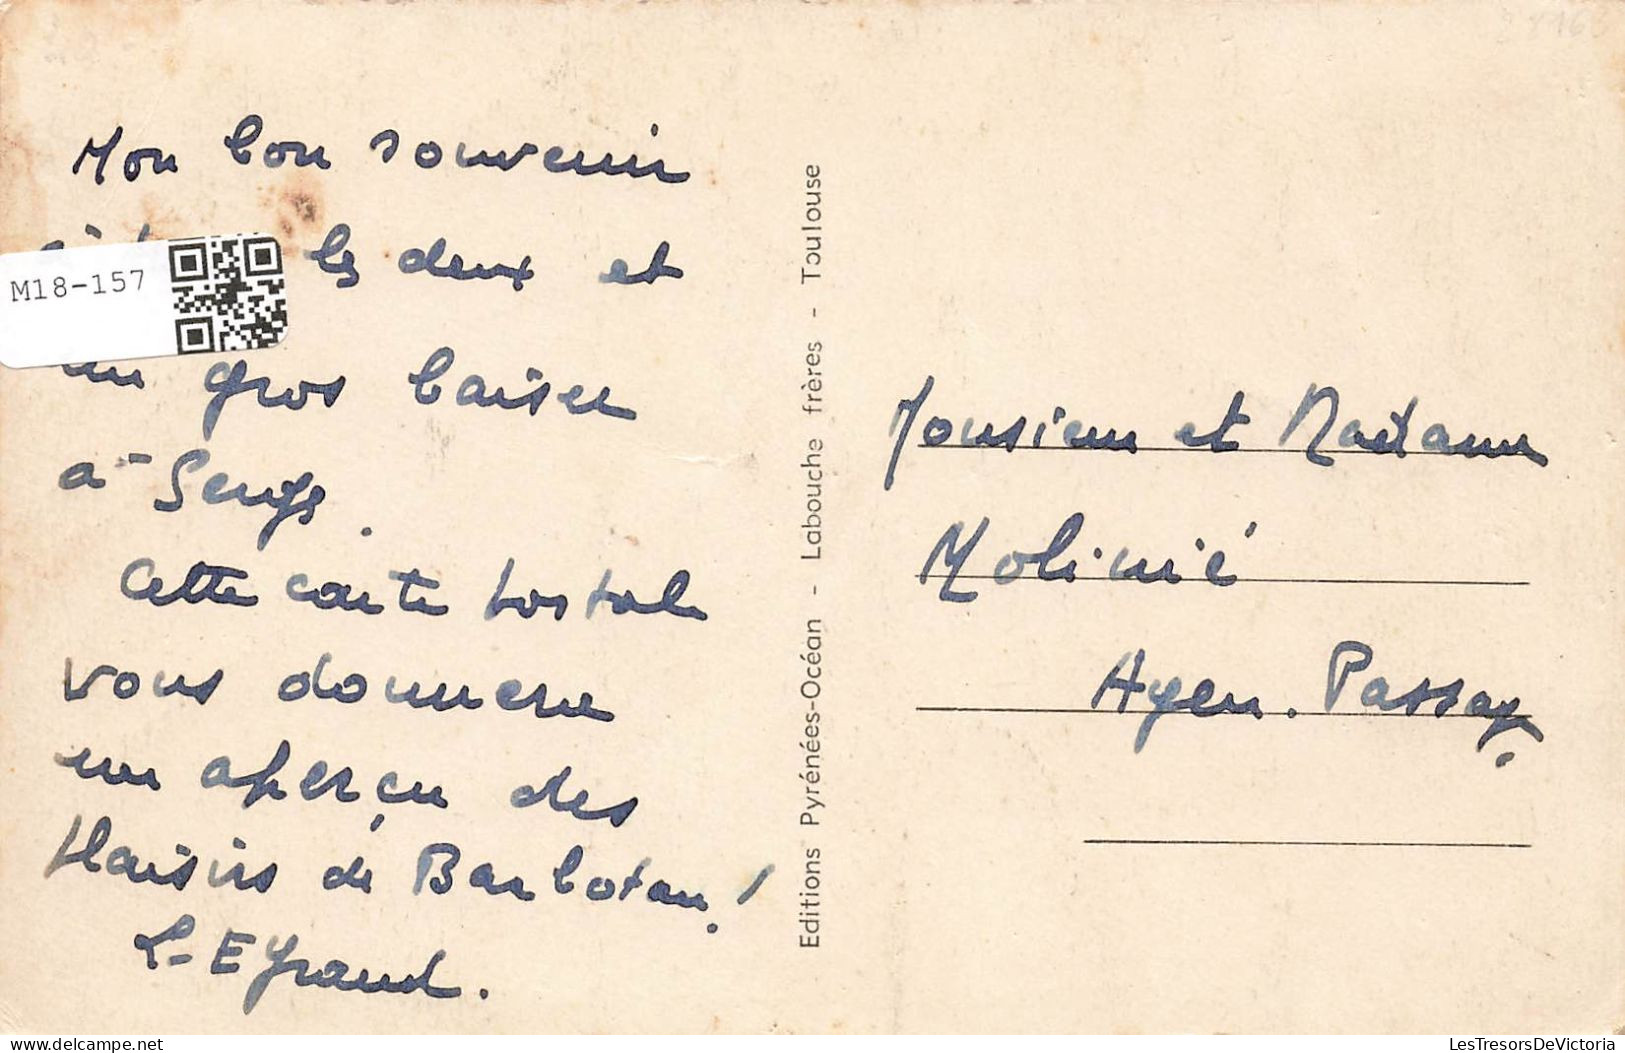 Mon bon souvenir
les deux et
M18-157
un gros baiser
à Serge.
Cette carte postale
vous donnera
un aperçu des
plaisirs de Barbotan!
L-Eyraud.
Editions Pyrénées-Océan - Labouche frères - Toulouse
Monsieur et Madame
Molinié
Agen. Passage
delcampe.net
LesTresorsDeVictoria